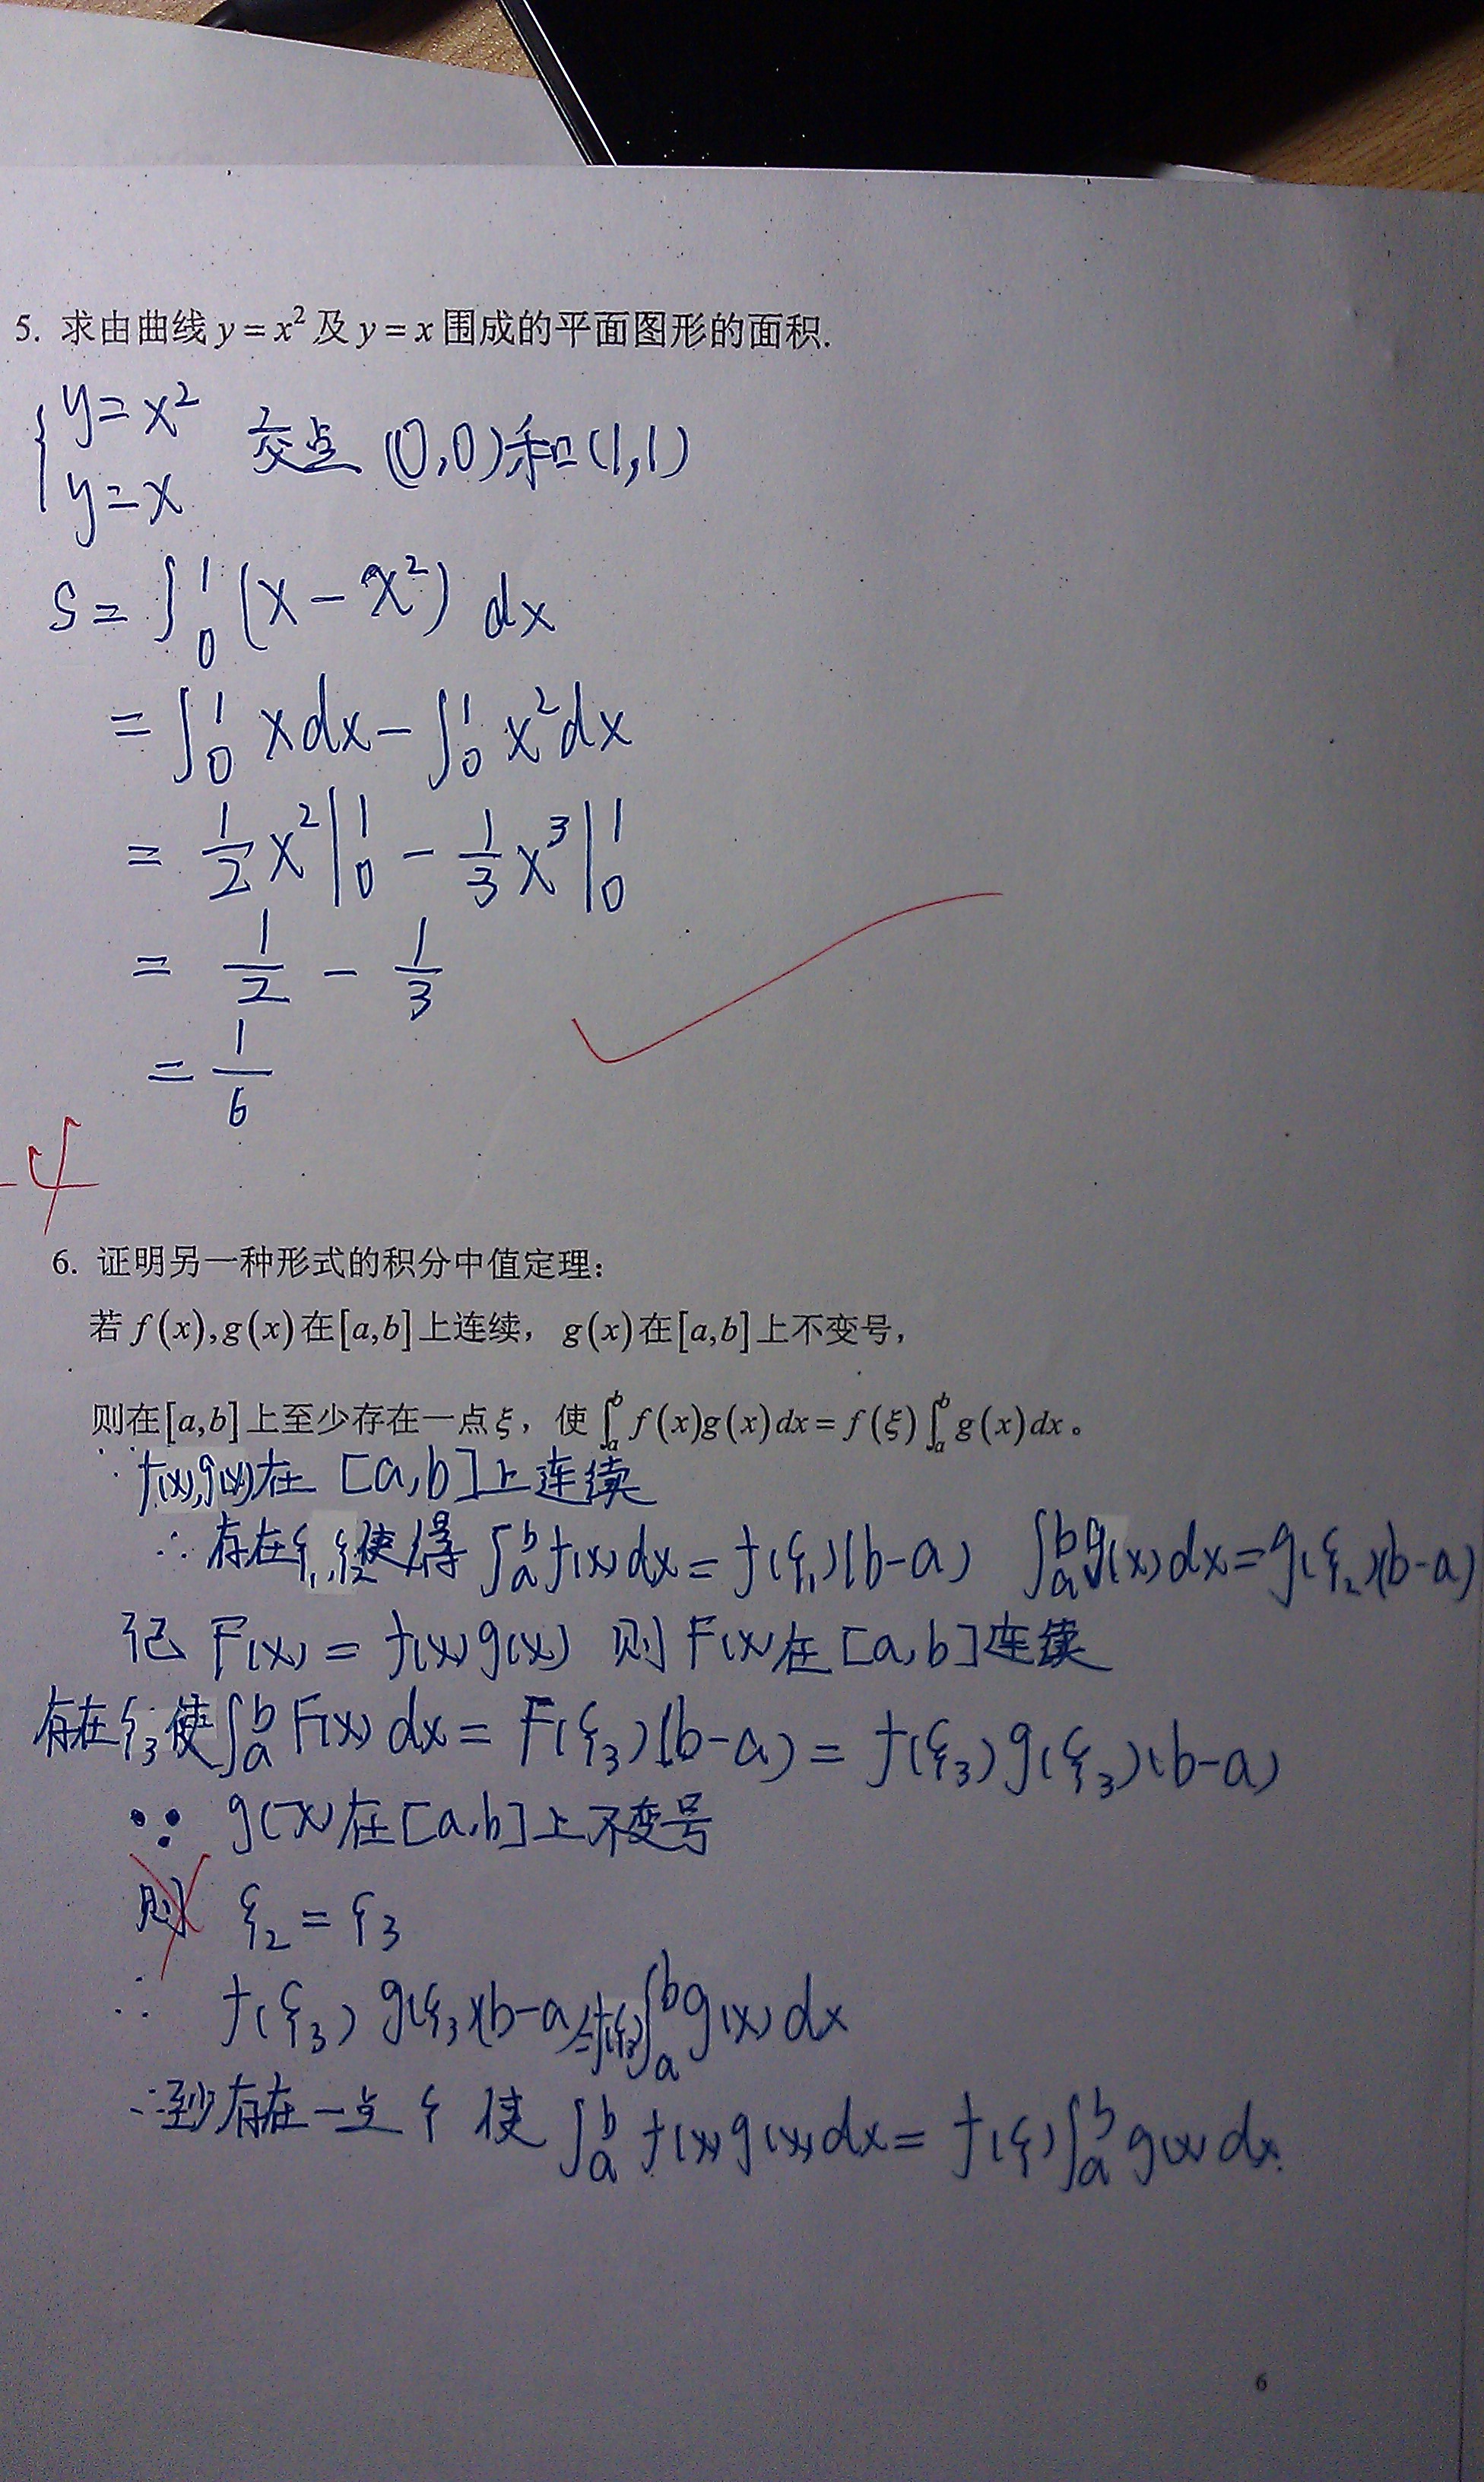 5. 求由曲线 y = x² 及 y = x 围成的平面图形的面积.
{ y = x²
y = x 交点 (0,0)和(1,1)
S = ∫₀¹ (x - x²) dx
= ∫₀¹ x dx - ∫₀¹ x² dx
= 1/2 x² |₀¹ - 1/3 x³ |₀¹
= 1/2 - 1/3
= 1/6
-4
6. 证明另一种形式的积分中值定理:
若 f(x),g(x) 在 [a,b] 上连续, g(x) 在 [a,b] 上不变号,
则在 [a,b] 上至少存在一点 ξ, 使 ∫ₐᵇ f(x)g(x)dx = f(ξ)∫ₐᵇ g(x)dx。
∵ f(x),g(x)在 [a,b]上连续
∴ 存在ξ₁,ξ₂使得 ∫ₐᵇ f(x)dx = f(ξ₁)(b-a) ∫ₐᵇ g(x)dx = g(ξ₂)(b-a)
记 F(x) = f(x)g(x) 则 F(x)在[a,b]连续
存在ξ₃使∫ₐᵇ F(x)dx = F(ξ₃)(b-a) = f(ξ₃)g(ξ₃)(b-a)
∵ g(x)在[a,b]上不变号
则 ξ₂ = ξ₃
∴ f(ξ₃)g(ξ₃)(b-a)=f(ξ₃)∫ₐᵇ g(x)dx
∴至少存在一点 ξ 使 ∫ₐᵇ f(x)g(x)dx = f(ξ)∫ₐᵇ g(x)dx.
6